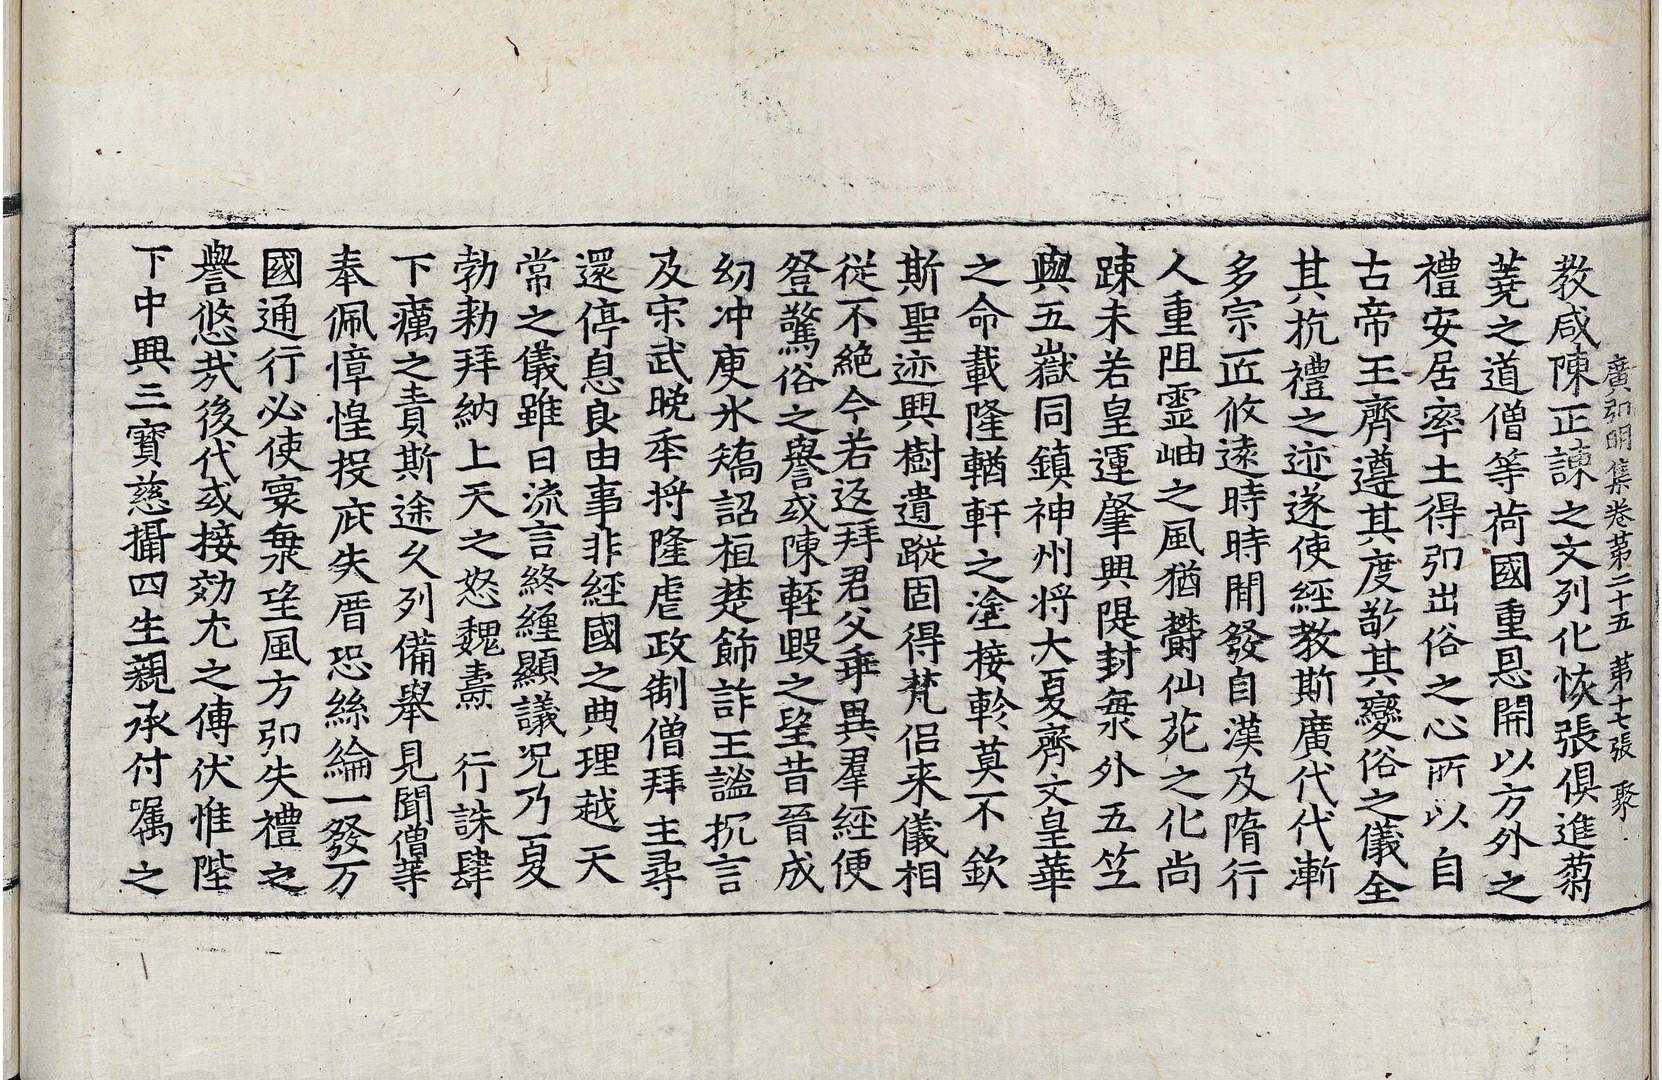 廣弘明集卷苐二十五　苐十七張　聚
教咸陳正諫之文列化恢張俱進蒭
蕘之道僧等荷國重恩開以方外之
禮安居率土得弘出俗之心所以自
古帝王齊遵其度敬其變俗之儀全
其抗禮之迹遂使經教斯廣代代漸
多宗匠攸遠時時間發自漢及隋行
人重阻靈岫之風猶欝仙苑之化尚
踈未若皇運肇興隄封無外五竺
與五嶽同鎮神州將大夏齊文皇華
之命載隆輶軒之塗接軫莫不欽
斯聖迹興樹遺蹤固得梵侣来儀相
從不絶今若返拜君父乖異羣經便
登驚俗之譽或陳輕毀之望昔晉成
幼冲庾氷矯詔桓楚飾詐王謐抗言
及宋武晚年將隆虐政制僧拜主尋
還停息良由事非經國之典理越天
常之儀雖曰流言終纏顯議况乃夏
勃勑拜納上天之怒魏燾　行誅肆
下癘之責斯途久列備舉見聞僧等
奉佩慞惶投庇失厝恐絲綸一發万
國通行必使寰無望風方弘失禮之
譽悠哉後代或接効尤之傅伏惟陛
下中興三寶慈攝四生親承付嘱之